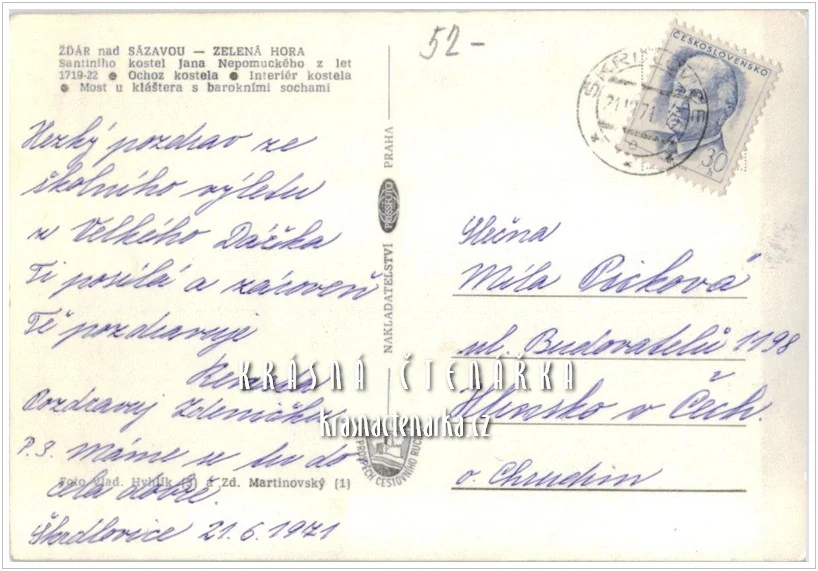 ŽĎÁR nad SÁZAVOU — ZELENÁ HORA
Santiniho kostel Jana Nepomuckého z let
1719-22 ● Ochoz kostela ● Interiér kostela
● Most u kláštera s barokními sochami
52-
ČESKOSLOVENSKO
30
h
Hezký pozdrav ze
školního výletu
z Velkého Dářka
Ti posílá a zároveň
Tě pozdravuje
Pozdravuj Zdeničku
P.S. Máme se tu do
cela dobře.
Škrdlovice 21.6.1971
Foto Vlad. Hyhlík (3) a Zd. Martinovský (1)
NAKLADATELSTVÍ PRESSFOTO PRAHA
PROSPĚCH CESTOVNÍHO RUCHU
Slečna
Míla
ul. Budovatelů 1198
Hlinsko v Čech.
o. Chrudim
KRÁSNÁ ČTENÁŘKA
krasnactenarka.cz